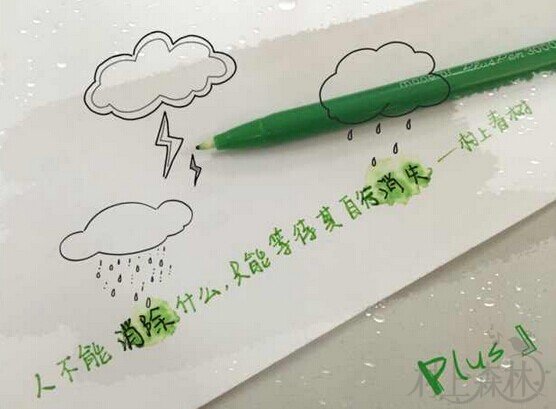 人不能消除什么,只能等待其自行消失 ——村上春树
Plus』
村上森林